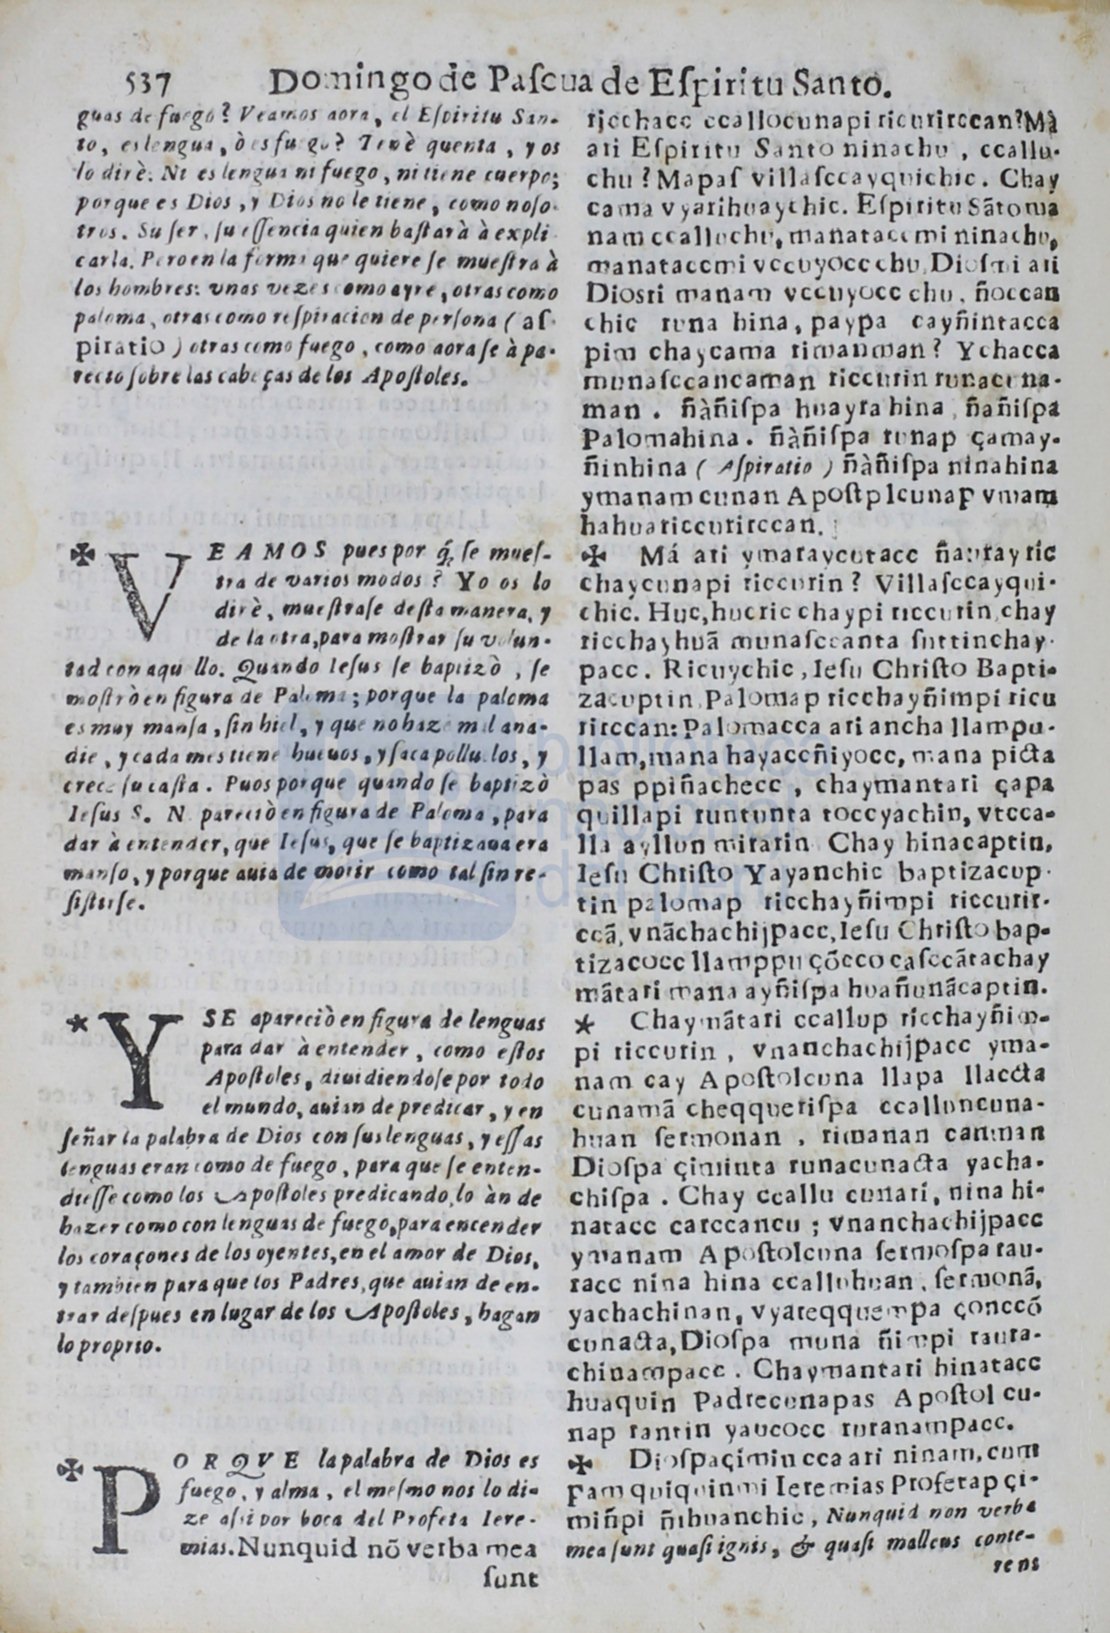 537 Domingo de Paſcua de Eſpiritu Santo.
guas de fuego? Veamos aora, el Eſpiritu San-
to, es lengua, ò es fuego? Tenè quenta, y os
lo dirè. Ni es lengua ni fuego, ni tiene cuerpo;
porque es Dios, y Dios no le tiene, como noſo-
tros. Su ſer, ſu eſſencia quien baſtarà à expli-
carla. Pero en la forma que quiere ſe mueſtra à
los hombres: vnas vezes como ayre, otras como
paloma, otras como reſpiracion de perſona (aſ-
piratio) otras como fuego, como aora ſe à pa-
recto ſobre las cabeças de los Apoſtoles.
✠ VEAMOS pues por q̃ ſe mueſ-
tra de varios modos? Yo os lo
dirè, mueſtraſe deſta manera, y
de la otra, para moſtrar ſu volun-
tad con aquello. Quando Ieſus ſe baptizò, ſe
moſtrò en figura de Paloma; porque la paloma
es muy manſa, ſin hiel, y que no haze mal a na-
die, y cada mes tiene hueuos, y ſaca pollu.los, y
crece ſu caſta. Puos porque quando ſe baptizò
Ieſus S. N. pareciò en figura de Paloma, para
dar à entender, que Ieſus, que ſe baptizaua era
manſo, y porque auia de morir como tal ſin re-
ſiſtirſe.
* Y SE apareciò en figura de lenguas
para dar à entender, como eſtos
Apoſtoles, diuidiendoſe por todo
el mundo, auian de predicar, y en
ſeñar la palabra de Dios con ſus lenguas, y eſſas
lenguas eran como de fuego, para que ſe enten-
dieſſe como los Apoſtoles predicando, lo àn de
hazer como con lenguas de fuego, para encender
los coraçones de los oyentes, en el amor de Dios,
y tambien para que los Padres, que auian de en-
trar deſpues en lugar de los Apoſtoles, hagan
lo proprio.
✠ PORQVE la palabra de Dios es
fuego, y alma, el meſmo nos lo di-
ze aſsi por boca del Profeta Iere-
mias. Nunquid nõ verba mea
ſunt
rijcchacc ccallocunapi ricurirccan? Mà
ati Eſpiritu Santo ninachu, ccallu-
chu? Mapaſ villaſccayquichic. Chay
cama vyarihuaychic. Eſpiritu Sãto ma
nam ccalluchu, manataccmi ninachu,
manataccmi vccuyocc chu, Dioſmi ati
Diosri manam vccuyocc chu, ñoccan
chic runa hina, paypa cayñintacca
pim chaycama rimanman? Ychacca
munaſccancaman riccurin runacuna-
man. ñàñiſpa huayra hina, ñañiſpa
Palomahina. ñàñiſpa runap çamay-
ñinhina (Aſpiratio) ñàñiſpa ninahina
ymanam cunan Apoſtolcunap vmam
hahua riccurirccan.
✠ Má ati ymaraycutacc ñauray ric
chaycunapi riccurin? Villaſccayqui-
chic. Huc, huc ricchaypi riccurin, chay
ricchayhuã munaſccanta ſuttinchay-
pacc. Ricuychic, Ieſu Chriſto Bapti-
zacuptin Palomap ricchayñimpi ricu
rirccan: Palomacca ati ancha llampu-
llam, mana hayaccñiyocc, mana picta
pas ppiñachecc, chaymantari çapa
quillapi runtunta toccyachin, vtcca-
lla ayllun mirarin Chay hinacaptin,
Ieſu Chriſto Yayanchic baptizacup-
tin palomap ricchayñimpi riccurir-
ccã, vnãchachijpacc, Ieſu Chriſto bap-
tizacocc llamppu çõcco caſccãtachay
mãtari mana ayñiſpa huañunãcaptin.
* Chaymãtari ccallup ricchayñim-
pi riccurin, vnanchachijpacc yma-
nam cay Apoſtolcuna llapa llaccta
cunamã cheqqueriſpa ccalluncuna-
huan ſermonan, rimanan canman
Dioſpa çiminta runacunacta yacha-
chiſpa. Chay ccallu cunari, nina hi-
natacc carccancu; vnanchachijpacc
ymanam Apoſtolcuna ſermoſpa rau-
racc nina hina ccalluhuan, ſermonã,
yachachinan, vyareqquempa çonccõ
cunacta, Dioſpa muna ñimpi raura-
chinampacc. Chaymantari hinatacc
huaquin Padrecunapas Apoſtol cu-
nap rantin yaucocc ruranampacc.
✠ Dioſpaçimin cca ari ninam, cum
pam quiquinmi Ieremias Profetap çi-
miñpi ñihuanchic, Nunquid non verba
mea ſunt quaſi ignis, & quaſi malleus conte-
rens